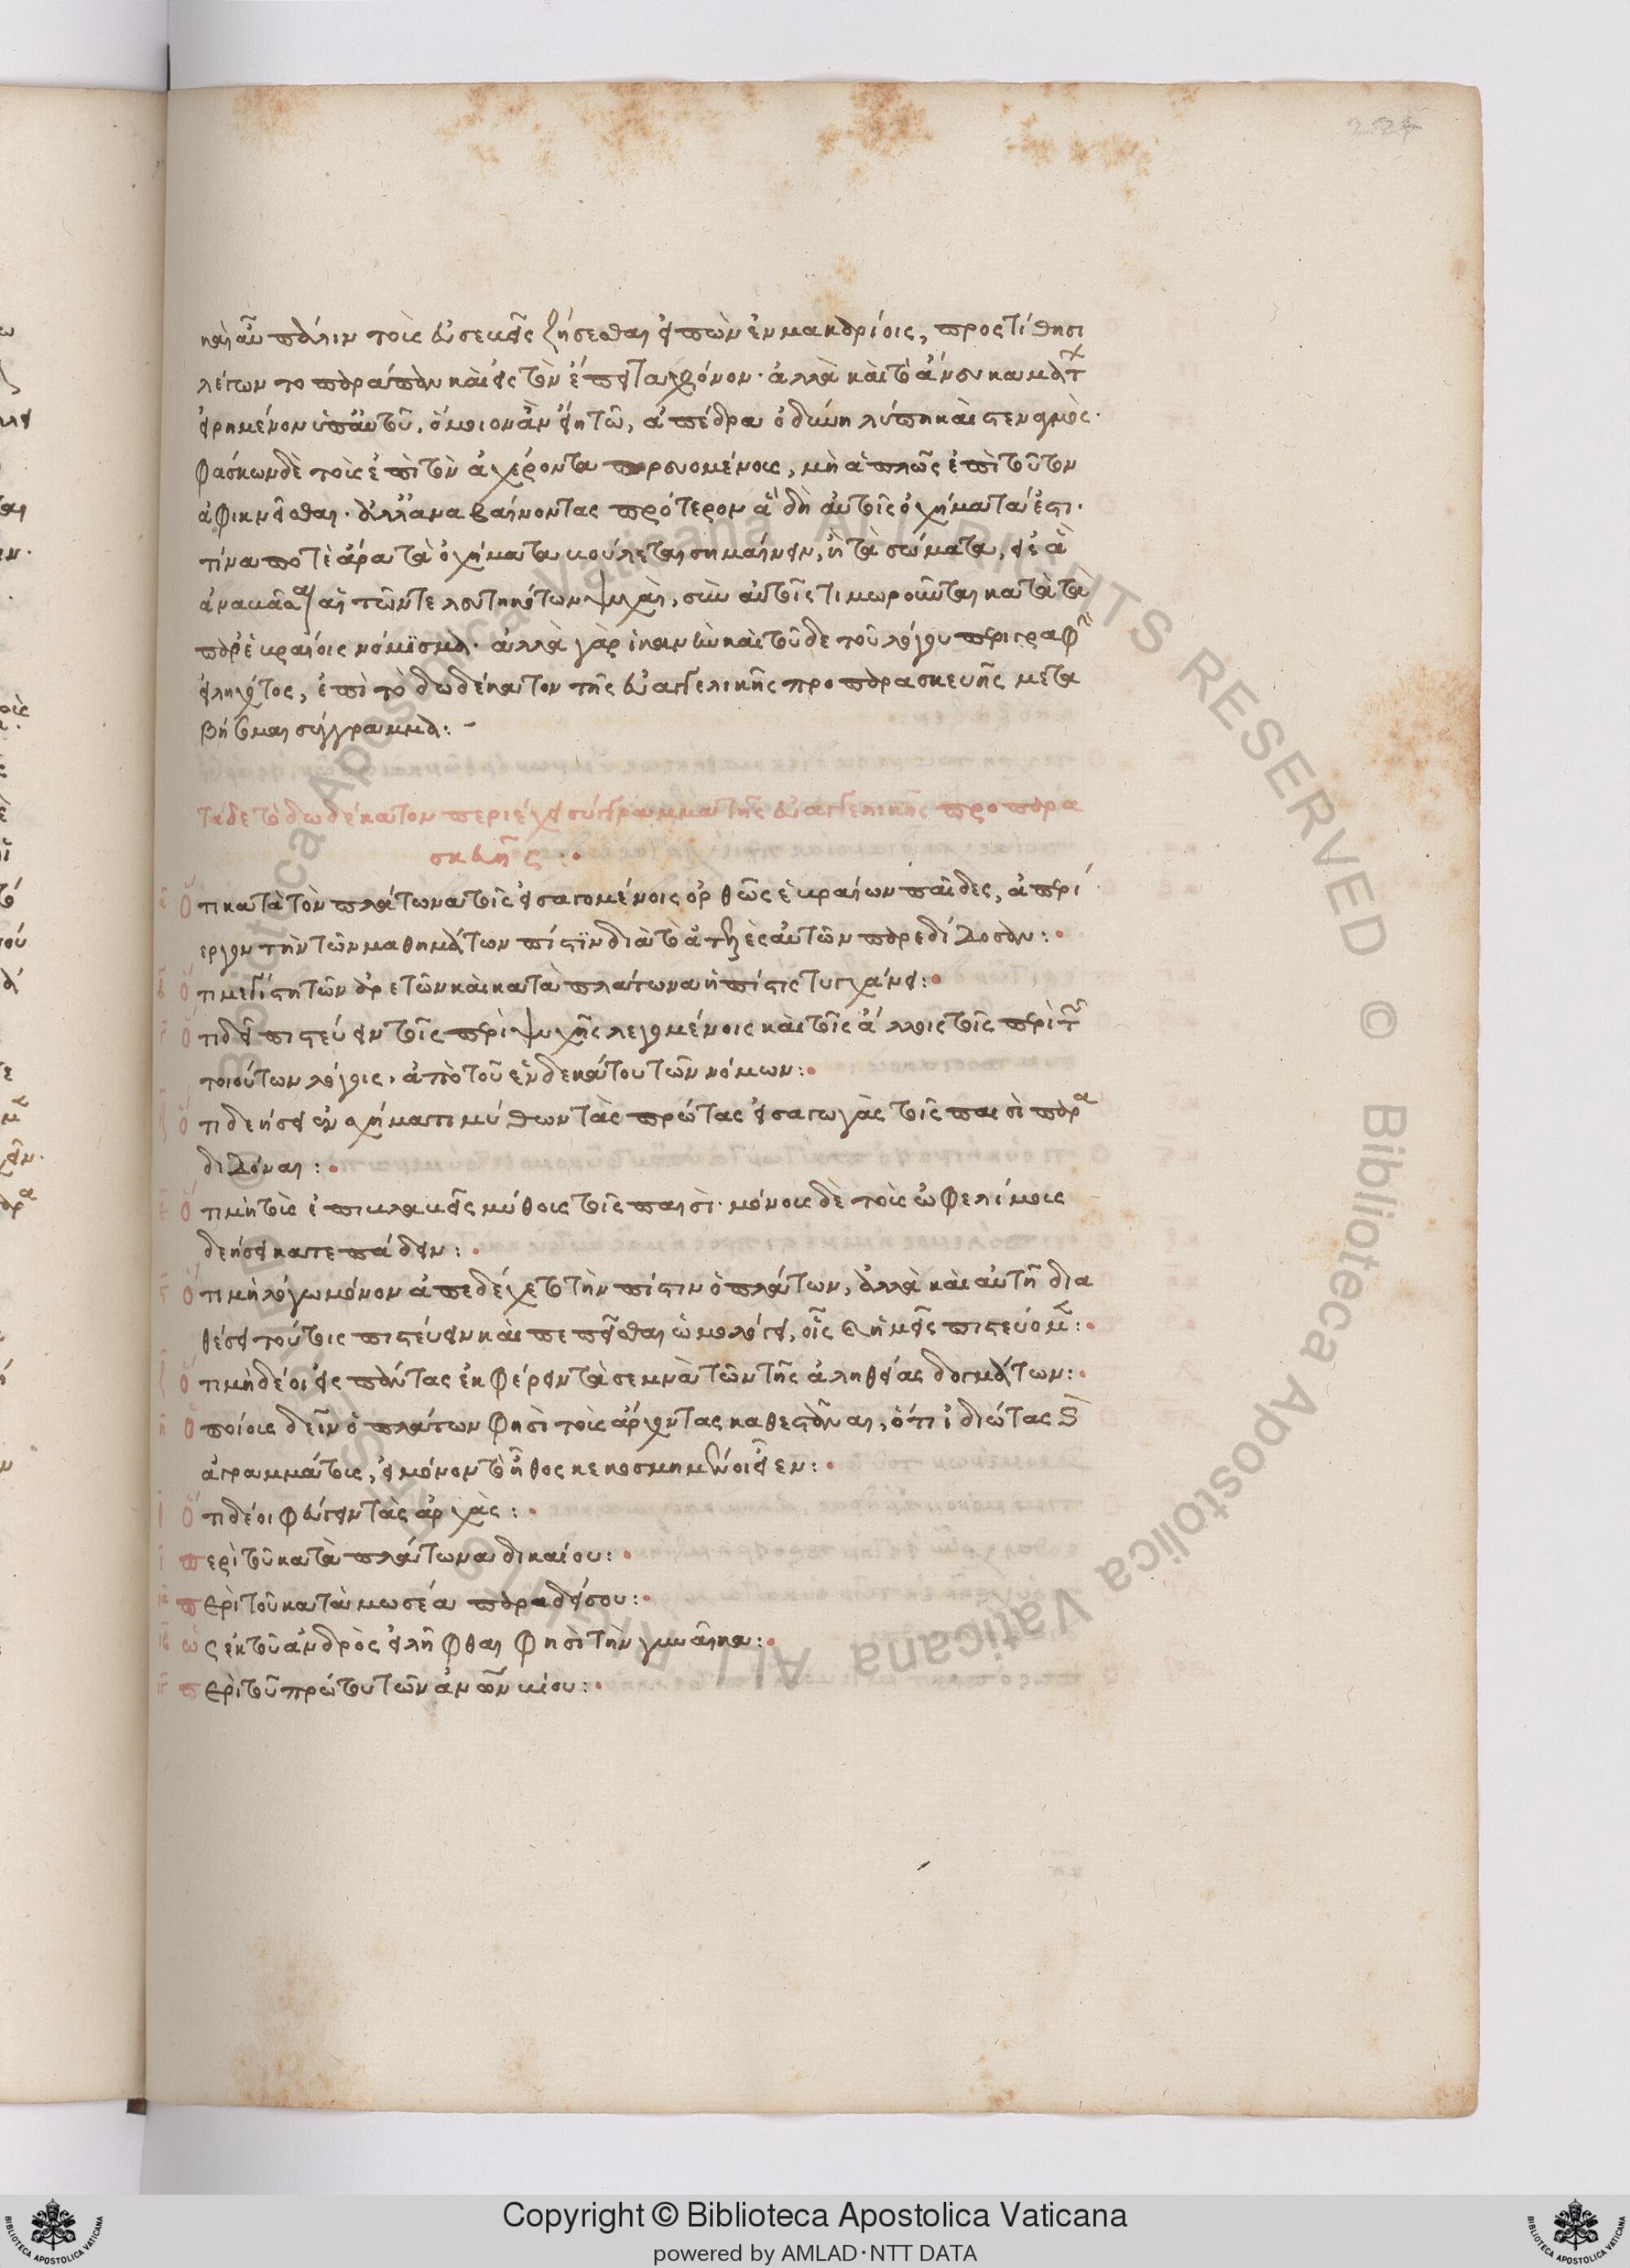 224
καὶ αὖ πάλιν τοῖς εὐσεβέσι ζήσεσθαι εἰπὼν ἐν μακαρίοις, προστίθησι
λέγων τὸ παράπαν καὶ εἰς τὸν ἔπειτα χρόνον· ἀλλὰ καὶ τὸ
εἰρημένον ὑπ' αὐτοῦ, ὅμοιον ἂν εἴη τῶ, ἀπέδρα ὀδύνη λύπη καὶ στεναγμὸς·
φάσκων δὲ τοῖς ἐπὶ τὸν ἀχέροντα πορευομένοις, μὴ ἁπλῶς ἐπὶ τοῦτον
ἀφικνεῖσθαι· ἀλλ' ἀναβαίνοντας πρότερον ἃ δὴ αὐτοῖς ὀχήματά ἐστι·
τίνα ποτὲ ἄρα τὰ ὀχήματα βούλεται σημαίνειν, ἢ τὰ σώματα, εἰς ἃ
ἀναβᾶσαι αἱ τῶν τελευτηκότων ψυχαὶ, σὺν αὐτοῖς τιμωροῦνται κατὰ τὰ
παρ' ἑβραίοις νενομισμένα· ἀλλὰ γὰρ ἱκανὴν καὶ τοῦδε τοῦ λόγου περιγραφὴν
εἰληχότος, ἐπὶ τὸ δωδέκατον τῆς εὐαγγελικῆς προπαρασκευῆς μετα
βήσομαι σύγγραμμα:-
τάδε τὸ δωδέκατον περιέχει σύγγραμμα τῆς εὐαγγελικῆς προπαρα
σκευῆς:·
α Ὅτι κατὰ τὸν πλάτωνα τοῖς εἰσαγομένοις ὀρθῶς ἑβραίων παῖδες, ἀπερί
εργον τὴν τῶν μαθημάτων πίστιν διὰ τὸ ἀτελὲς αὐτῶν παρεδίδοσαν:·
β Ὅτι μεγίστη τῶν ἀρετῶν καὶ κατὰ πλάτωνα ἡ πίστις τυγχάνει:·
γ Ὅτι δεῖ πιστεύειν τοῖς περὶ ψυχῆς λεγομένοις καὶ τοῖς ἄλλοις τοῖς περὶ τῶν
τοιούτων λόγοις, ἀπὸ τοῦ ἑνδεκάτου τῶν νόμων:·
δ Ὅτι δεήσει ἐν σχήματι μύθων τὰς πρώτας εἰσαγωγὰς τοῖς παισὶ παρα
διδόναι:·
ε Ὅτι μὴ τοῖς ἐπιβλαβέσι μύθοις τοῖς παισὶ· μόνοις δὲ τοῖς ὠφελίμοις
δεήσει κατεπάδειν:·
ς Ὅτι μὴ λόγω μόνον ἀπεδέχετο τὴν πίστιν ὁ πλάτων, ἀλλὰ καὶ αὐτῆ δια
θέσει τούτοις πιστεύειν καὶ πεπεῖσθαι ὡμολόγει, οἷς καὶ ἡμεῖς πιστεύομεν:·
ζ Ὅτι μὴ δέοι εἰς πάντας ἐκφέρειν τὰ σεμνὰ τῶν τῆς ἀληθείας δογμάτων:·
η Ὁποίοις δεῖν ὁ πλάτων φησὶ τοῖς ἄρχοντας καθεστάναι, ὅτι ἰδιώτας καὶ
ἀγραμμάτοις, εἰ μόνον τὸ ἦθος κεκοσμημένοι εἶεν:·
θ Ὅτι δέοι φεύγειν τὰς ἀρχὰς:·
ι περὶ τοῦ κατὰ πλάτωνα δικαίου:·
ια περὶ τοῦ κατὰ μωσέα παραδείσου:·
ιβ ὡς ἐκ τοῦ ἀνδρὸς εἰλῆφθαι φησὶ τὴν γυναῖκα:·
ιγ περὶ τοῦ πρώτου τῶν ἀνθρώπων βίου:·
Copyright © Biblioteca Apostolica Vaticana
powered by AMLAD·NTT DATA